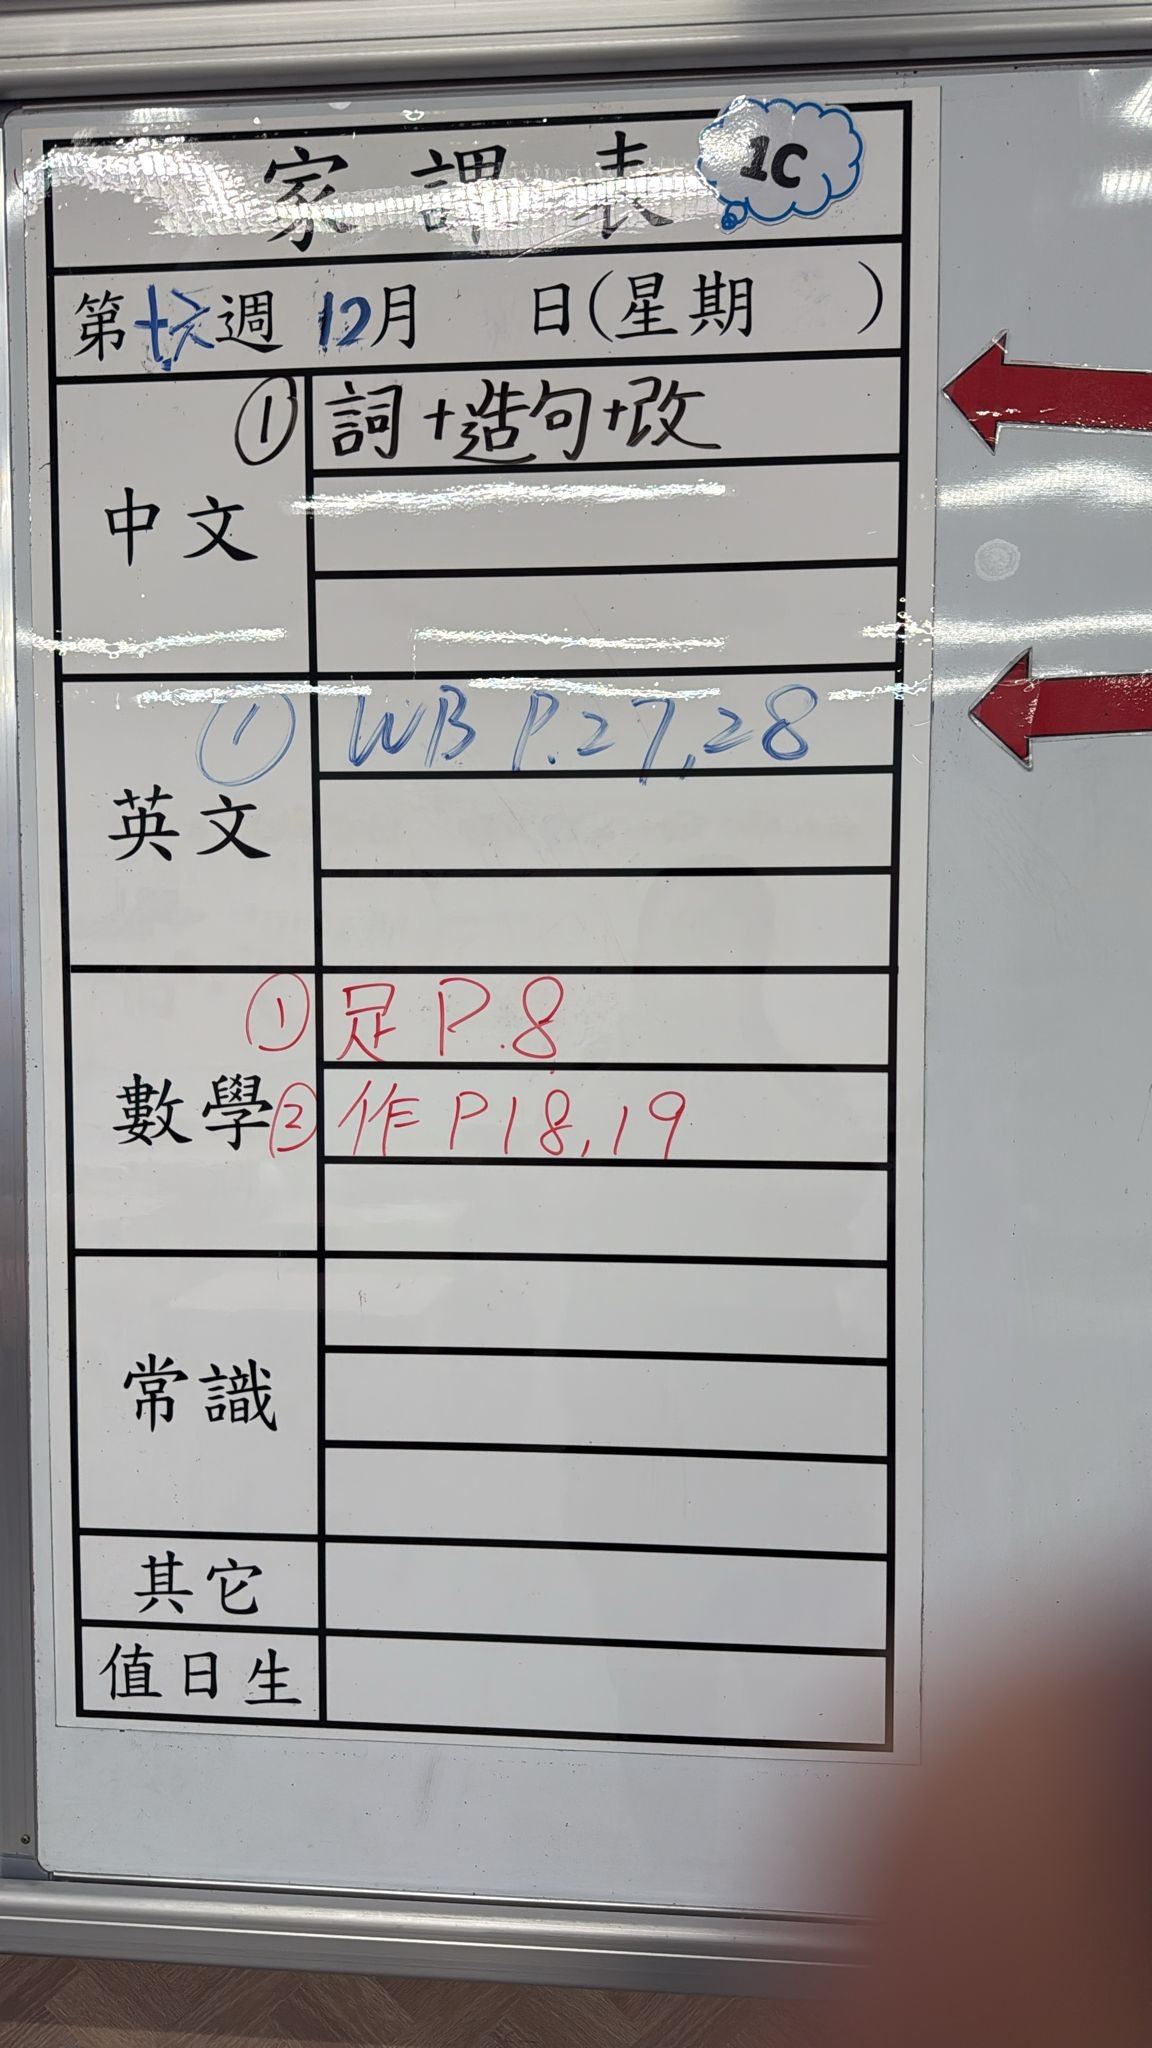 家課表 1C
第十六週 12月 日(星期 )
中文
① 詞+造句+改
英文
① WB P.27,28
數學
① 足 P.8
② 作 P18,19
常識
其它
值日生